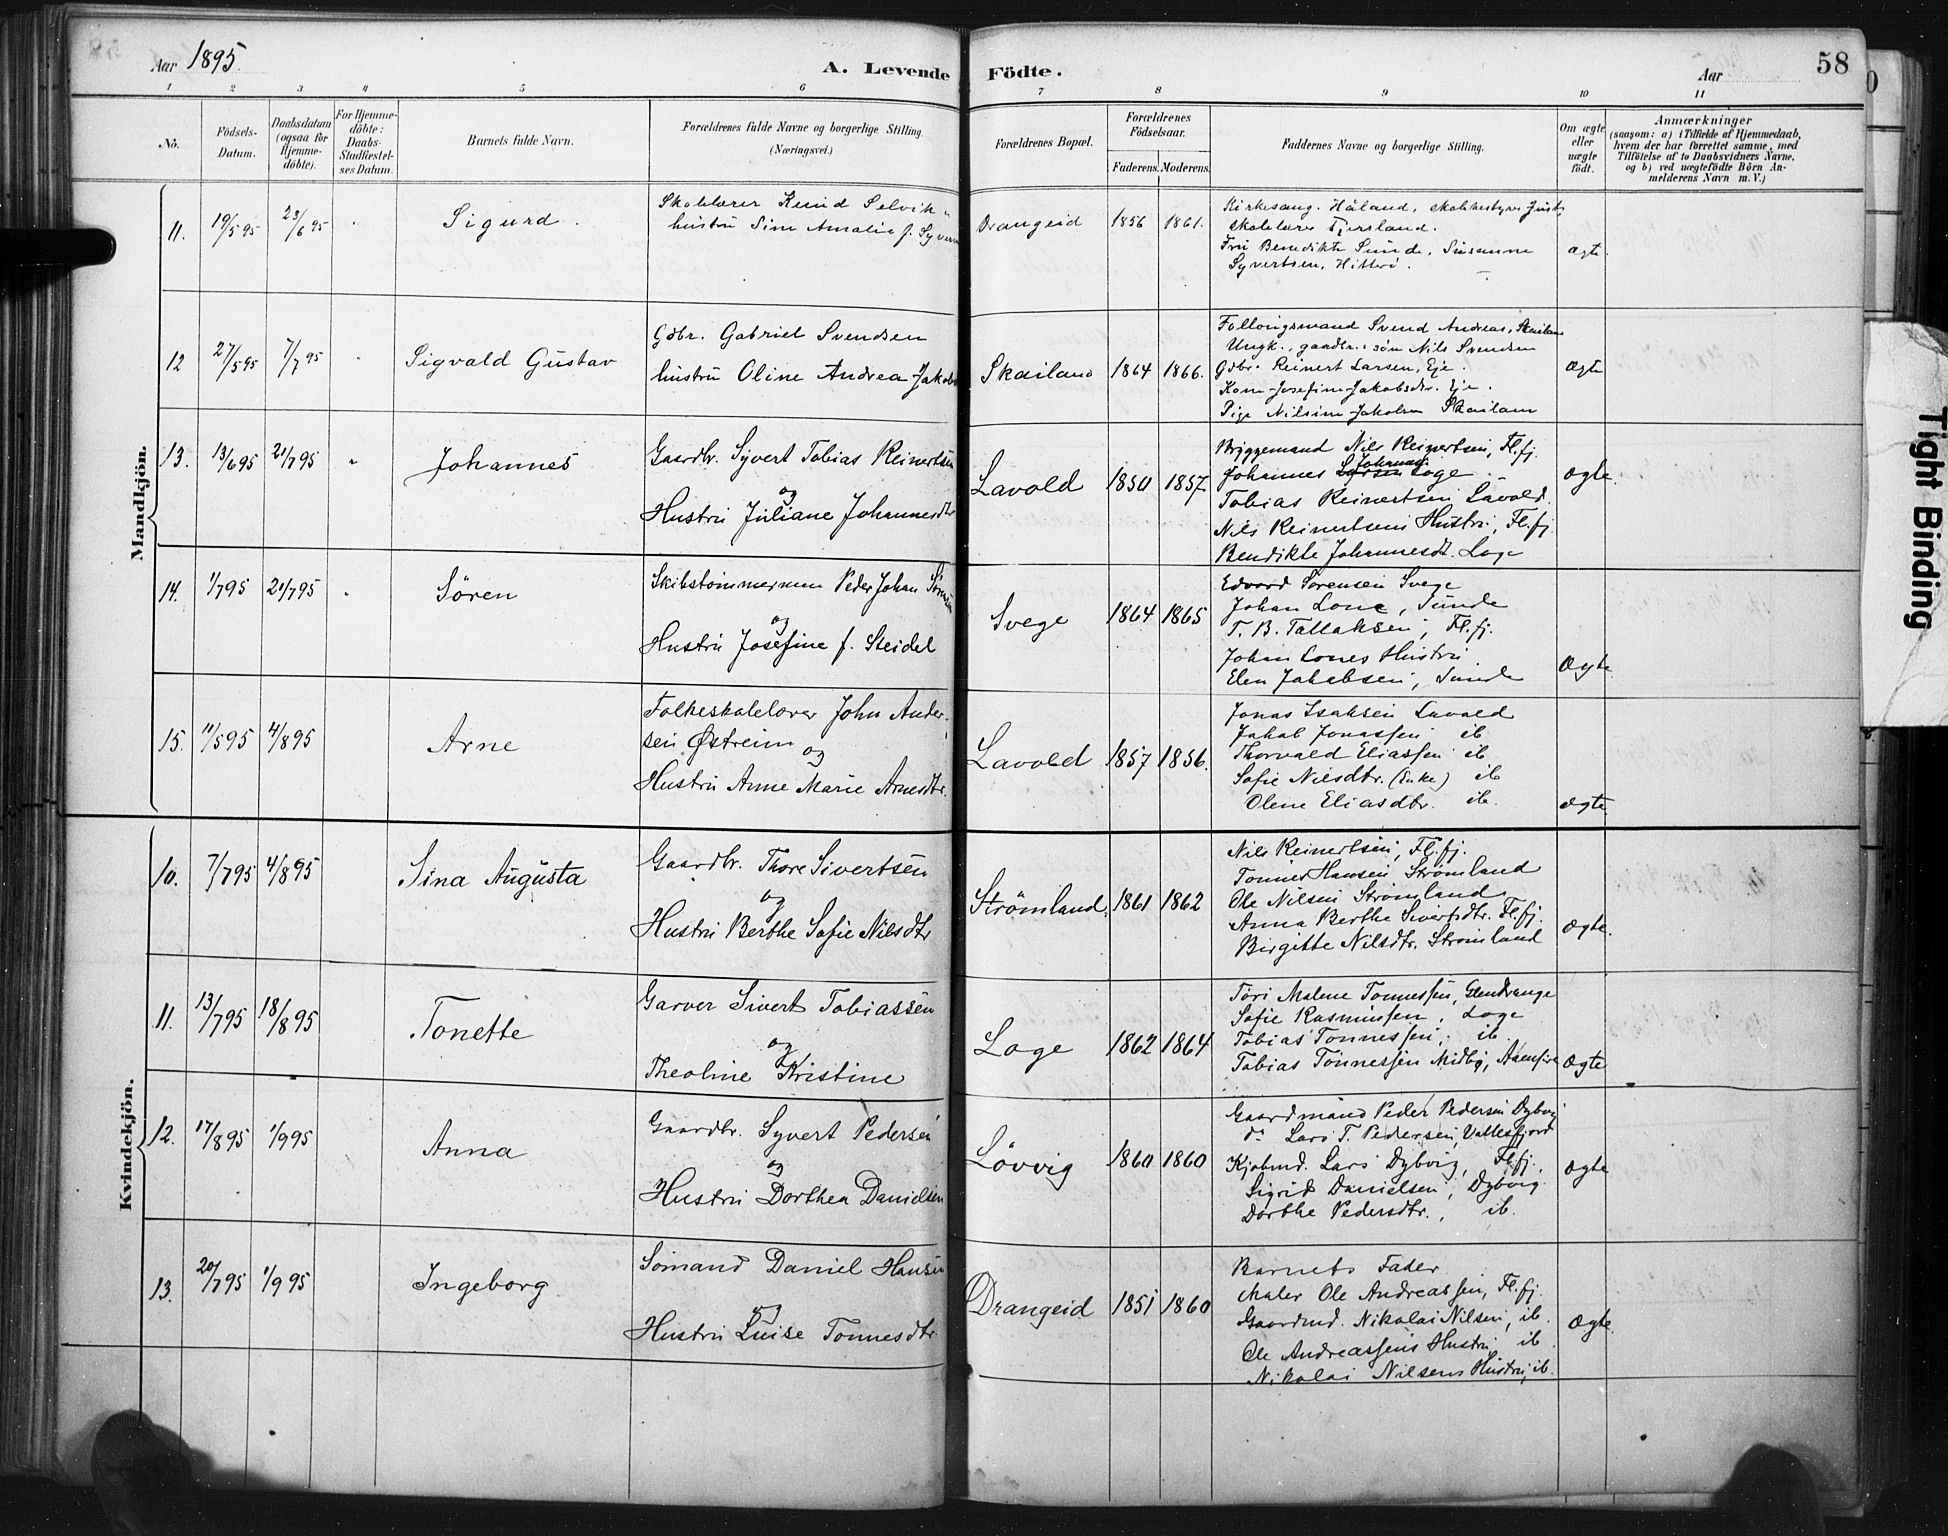 Aar 1895.
A. Levende Födte.
Aar
58
1 2 3 4 5 6 7 8 9 10 11
No.
Födsels-Datum.
Daabsdatum (ogsaa for Hjemme-döbte).
For Hjemme-döbte: Daabs-Stadfæstel-ses Datum.
Barnets fulde Navn.
Forældrenes fulde Navne og borgerlige Stilling.
(Næringsvei.)
Forældrenes Bopæl.
Forældrenes Födselsaar.
Faderens. Moderens.
Faddernes Navne og borgerlige Stilling.
Om ægte eller uægte födt.
Anmærkninger
(saasom: a) i Tilfælde af Hjemmedaab, hvem der har forrettet samme, med Tilföielse af to Daabsvidners Navne, og b) ved uægtefödte Börn An-melderens Navn m. V.)
Mandkjön.
11. 19/5 95 23/6 95 Sigurd.
Skolelærer Knud Selvik
hustru Sine Amalie f. Syvertsen
Drangeid 1856 1861.
Kirkesang. Håland, skolebestyrer Just,
skolelærer Tjersland.
Fru Benedikte Sunde, Susanne
Syvertsen, Hitterö.
ægte.
12 27/5 95 7/7 95 Sigvald Gustav
Gdbr. Gabriel Svendsen
hustru Oline Andrea Jakobs
Skailand 1864 1866.
Follougsmand Svend Andreas, Skailand
Ungk., gaardbr.: sön Nils Svendsen
Gdbr. Reinert Larsen, Eje.
Kone Josefine Jakobsdtr. Eje.
Pige Nilsine Jakobsen Skailand
Ægte
13. 13/6 95 21/7 95 Johannes
Gaardbr. Syvert Tobias Reinertsen
og
Hustru Juliane Johannesdtr
Lavold 1850 1857.
Bryggemand Nils Reinertsen, Fl.fj.
Johannes Larsen Johannes Loge
Tobias Reinertsen Lavold.
Nils Reinertsens Hustru, Fl.fj.
Bendikte Johannesdt. Loge
Ægte.
14. 1/7 95 21/7 95 Sören
Skibstömmermm Peder Johan Sörensen
og
Hustru Josefine f. Steidel
Svege 1864 1865
Edvard Sörensen Svege
Johan Lone, Sunde
T. B. Tallaksen, Fl.fj.
Johan Lones Hustru.
Elen Jakobsen, Sunde
Ægte.
15. 11/5 95 4/8 95 Arne
Folkeskolelærer John Ander-
sen Østreim og
Hustru Anne Marie Arnesdtr.
Lavold 1857 1856.
Jonas Isaksen Lavold
Jakob Jonassen ib
Thorvald Eliassen ib
Sofie Nilsdtr. (Enke) ib
Olene Eliasdtr. ib.
ægte.
Kvindekjön.
10. 7/7 95 4/8 95 Sina Augusta
Gaardbr. Thore Sivertsen
og
Hustru Berthe Sofie Nilsdtr
Strömland 1861 1862
Nils Reinertsen, Fl.fj.
Tönnes Hansen Strömland
Ole Nilsen Strömland
Anna Berthe Sivertsdtr. Fl.fj.
Birgitte Nilsdtr. Strömland
ægte.
11. 13/7 95 18/8 95 Tonette
Garver Sivert Tobiassen
og
Theoline Kristine
Loge 1862 1864
Tori Malene Tonnessen, Glendrange
Sofie Rasmussen, Loge
Tobias Tonnessen, ib.
Tobias Tönnessen Midbö, Aaensire
Ægte
12. 17/8 95 1/9 95 Anna
Gaardbr. Syvert Pedersen
og
Hustru Dorthea Danielsen
Lövvig 1860 1860
Gaardmand Peder Pedersen Dybvig
do Lars T. Pedersen, Vallesfjord
Kjöbmd. Lars Dybvig, Fl.fj.
Sigrid Danielsen, Dybvig.
Dorthe Pedersdtr., ib.
Ægte
13. 20/7 95 1/9 95 Ingeborg
Sömand Daniel Hansen
og
Hustru Luise Tonnesdtr.
Drangeid 1851 1860
Barnets Fader
Maler Ole Andreassen, Fl.fj.
Gaardmd. Nikolai Nilsen, ib.
Ole Andreassens Hustru ib
Nikolai Nilsens Hustru, ib.
Ægte.
Tight Binding